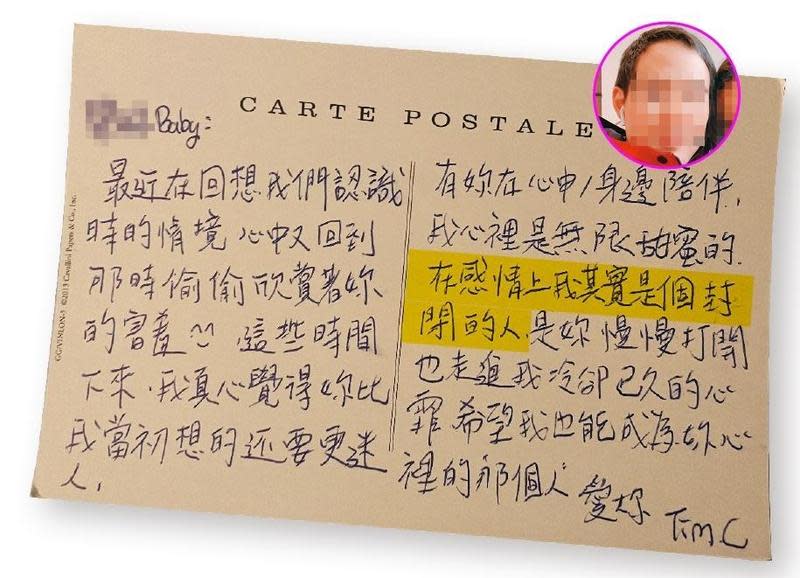 CARTE POSTALE
Baby:
最近在回想我們認識
時的情境 心中又回到
那時偷偷欣賞著妳
的害羞 這些時間
下來,我真心覺得妳比
我當初想的还要更迷
人,
有妳在心中/身邊陪伴,
我心裡是無限甜蜜的.
在感情上我其實是個封
閉的人.是妳慢慢打開
也走進我冷卻已久的心
霏.希望我也能成為妳心
裡的那個人 愛妳 Tim.C
©2013 Cavallini Papers & Co., Inc.